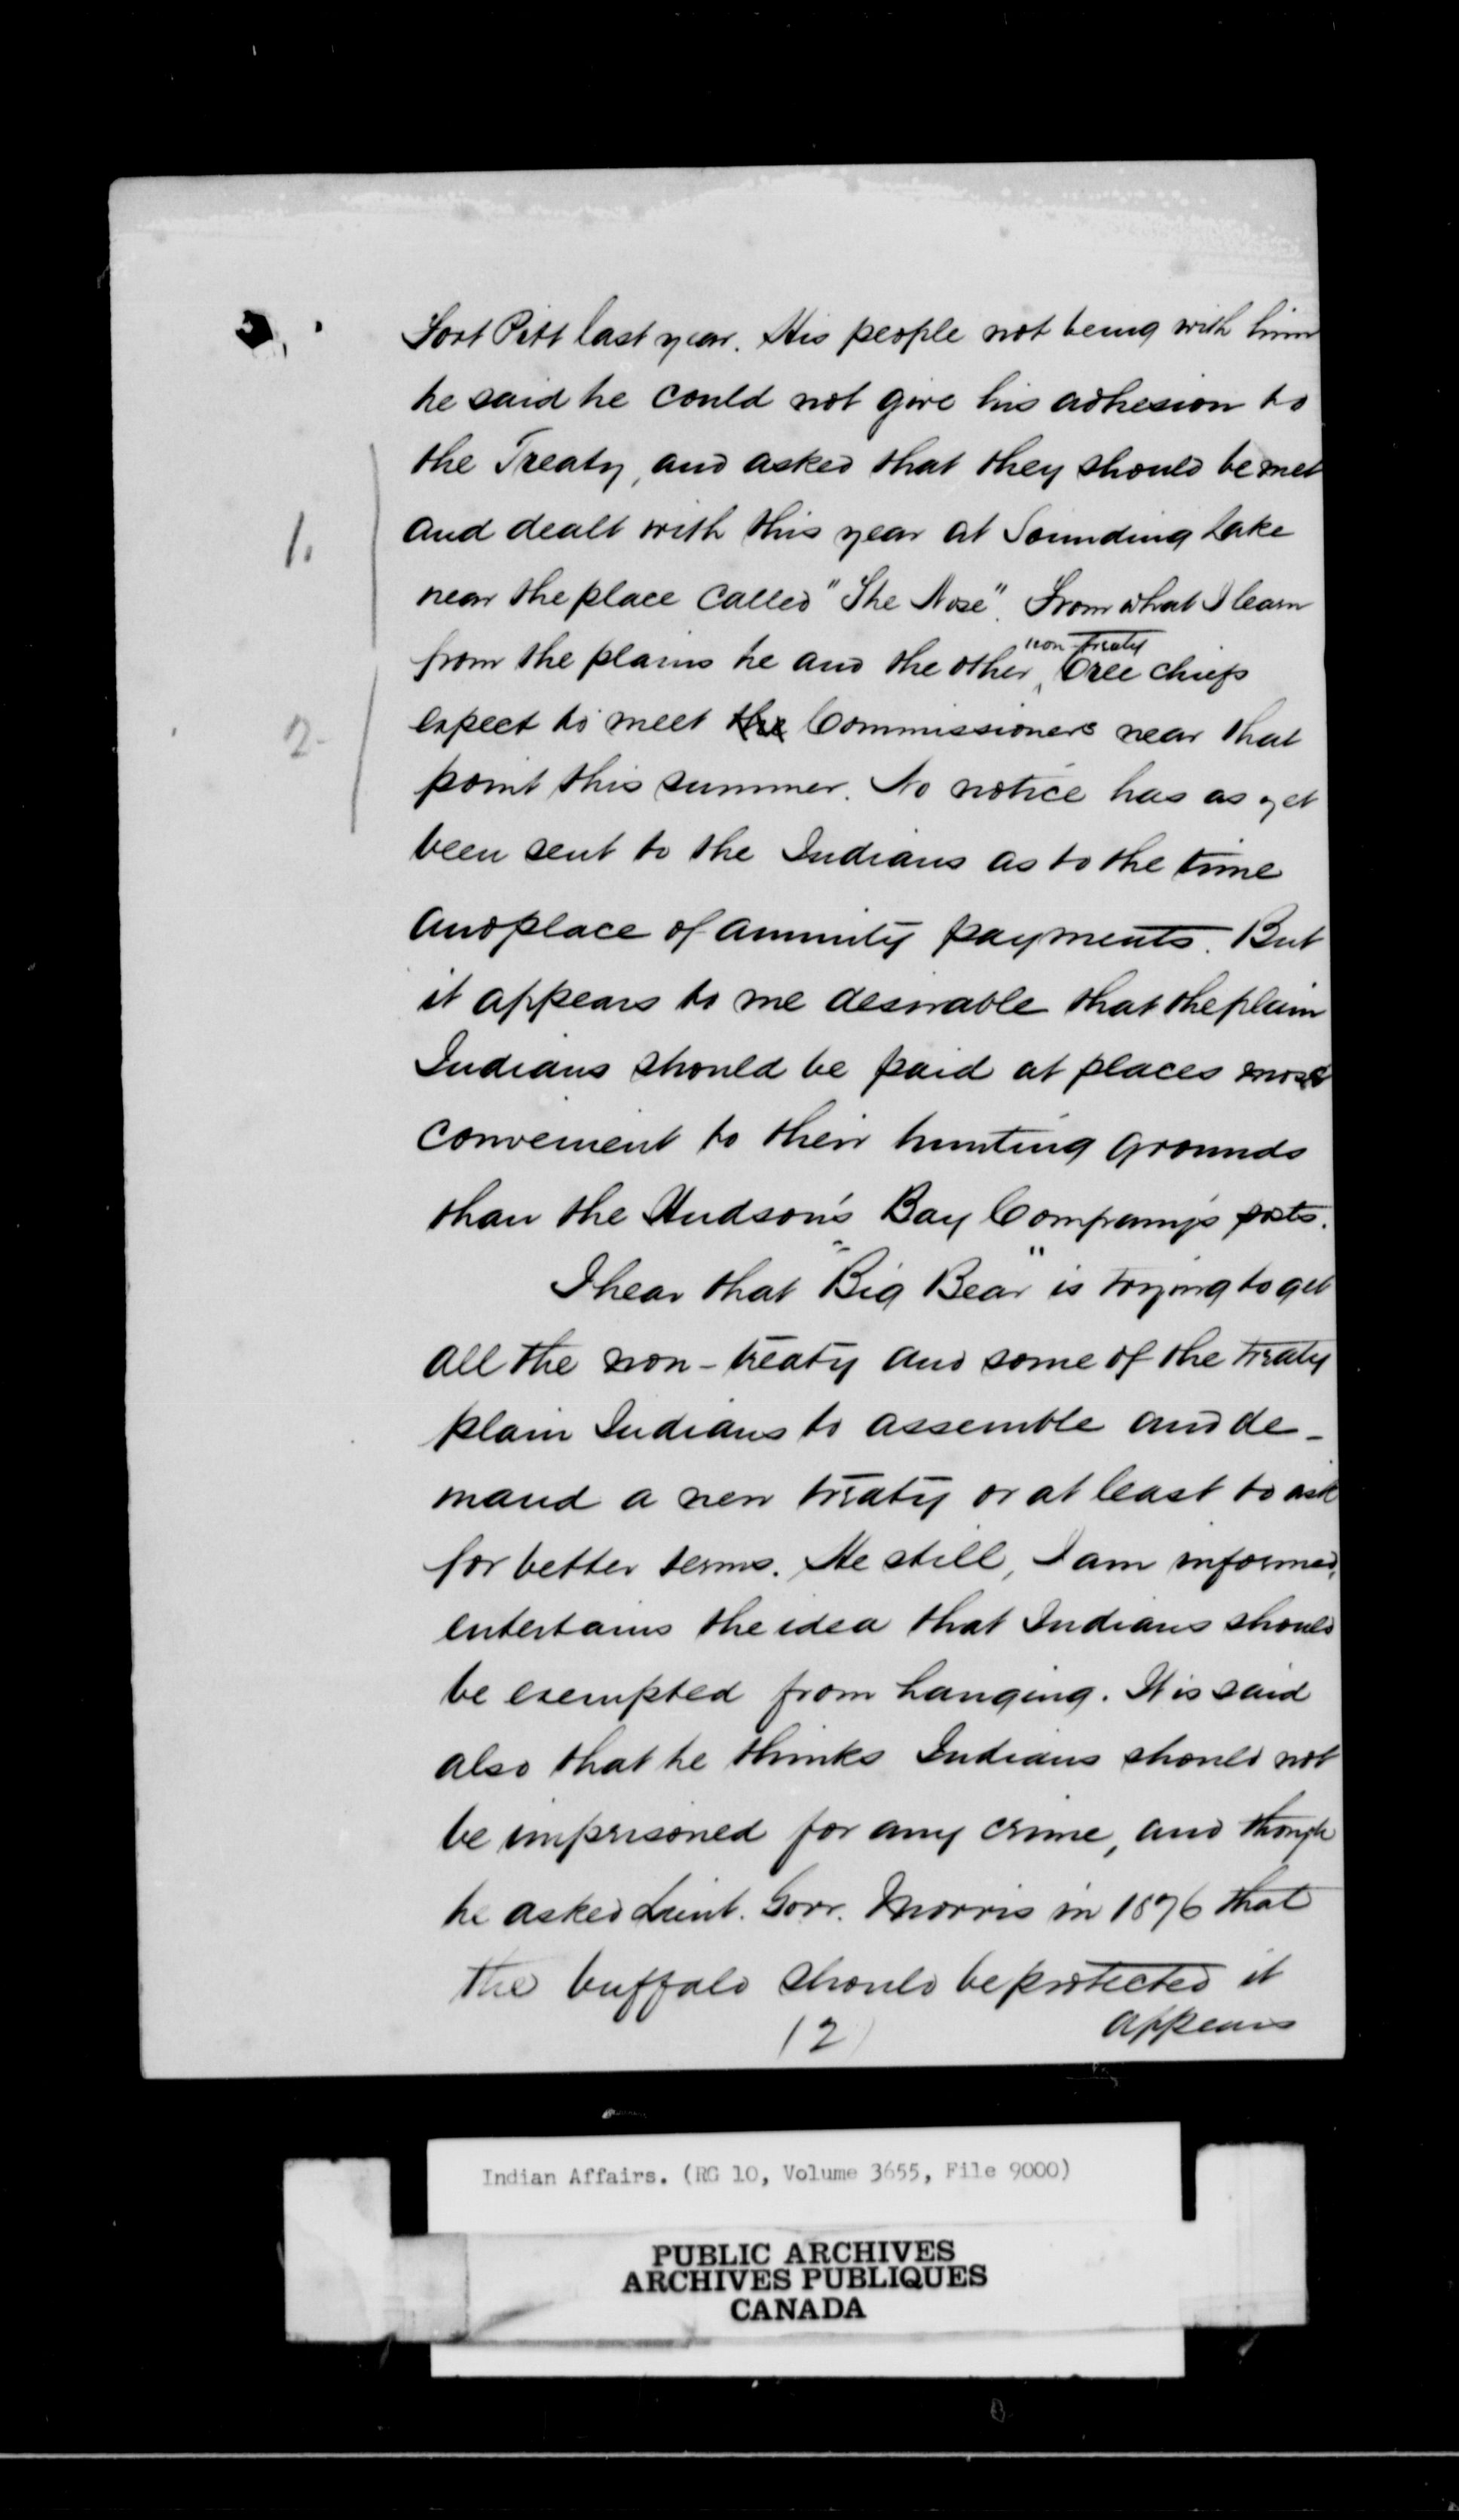 Fort Pitt last year. His people not being with him
he said he could not give his adhesion to
the Treaty, and asked that they should be met
1.
and dealt with this year at Sounding Lake
near the place called "The Nose". From what I learn
non-treaty
from the plains he and the other Cree chiefs
2-
expect to meet the Commissioners near that
point this summer. No notice has as yet
been sent to the Indians as to the time
and place of annuity payments. But
it appears to me desirable that the plain
Indians should be paid at places more
convenient to their hunting grounds
than the Hudson's Bay Company's posts.
I hear that "Big Bear" is trying to get
all the non-treaty and some of the treaty
plain Indians to assemble and de-
mand a new treaty or at least to ask
for better terms. He still, I am informed,
entertains the idea that Indians should
be exempted from hanging. It is said
also that he thinks Indians should not
be imprisoned for any crime, and though
he asked Lieut. Govr. Morris in 1876 that
the buffalo should be protected it
(2)
appears
Indian Affairs. (RG 10, Volume 3655, File 9000)
PUBLIC ARCHIVES
ARCHIVES PUBLIQUES
CANADA